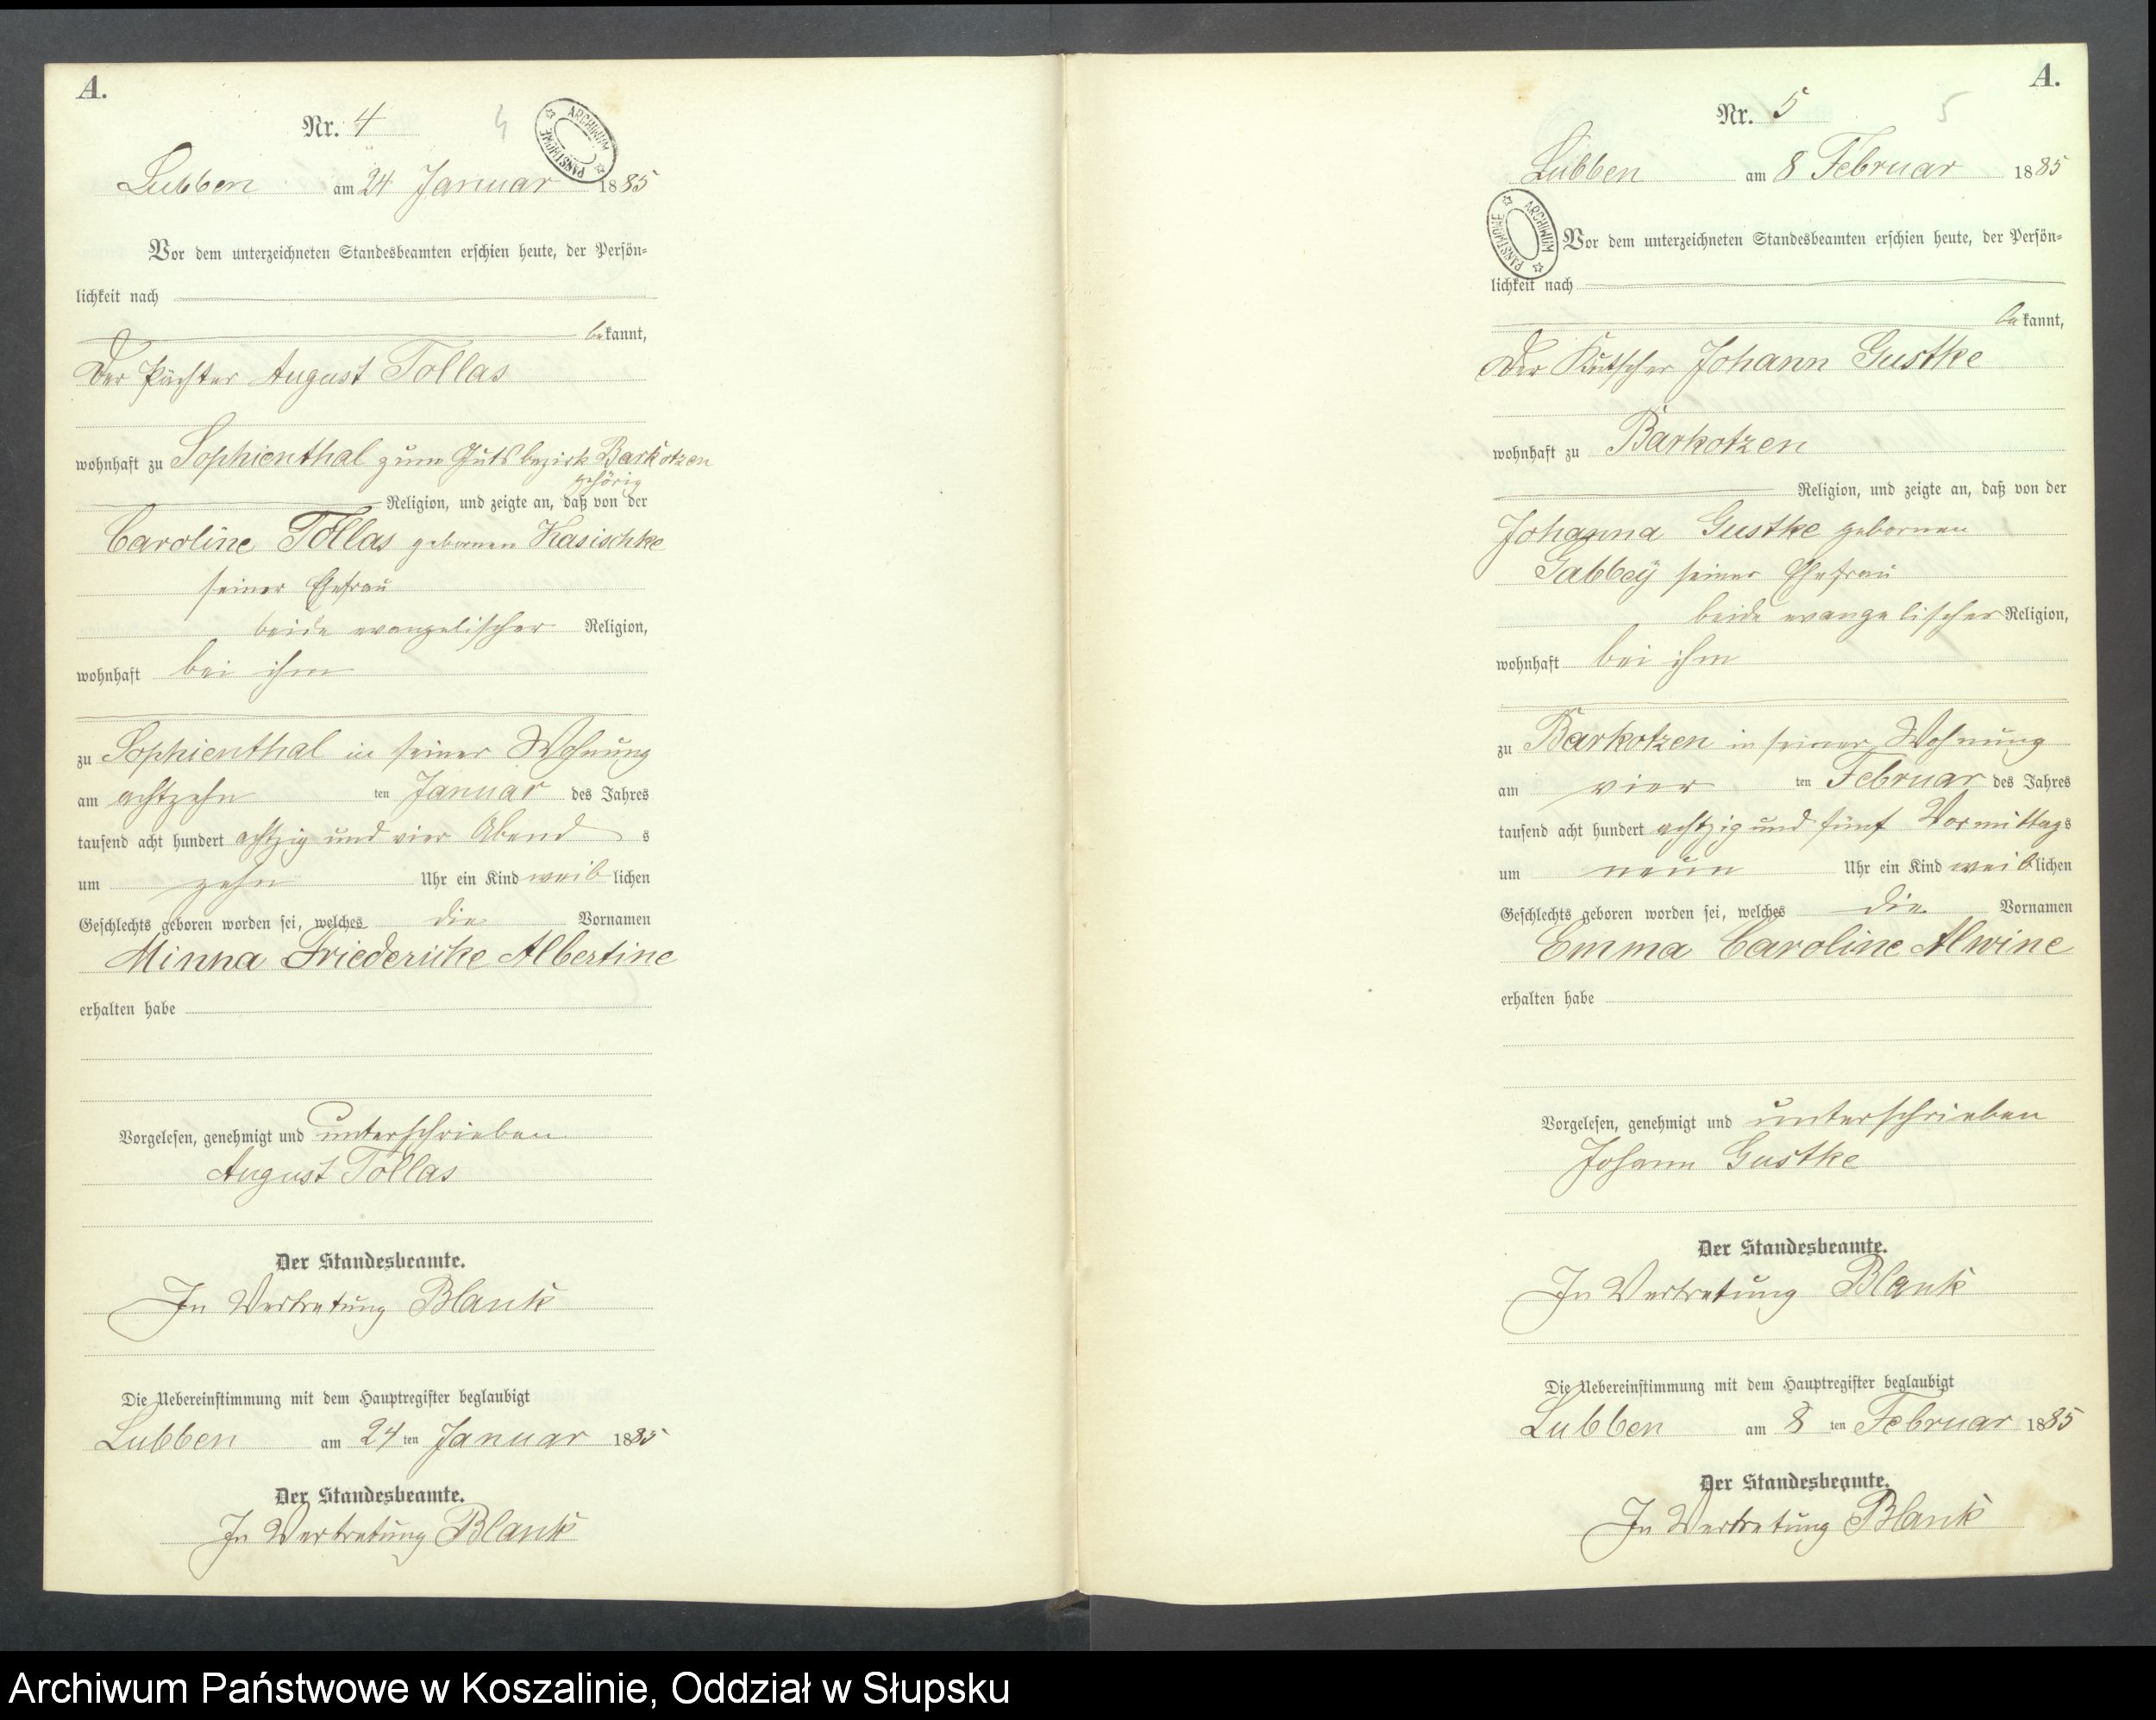 A.
Nr. 4
4
ARCHIWUM PAŃSTWOWE
Lubben am 24 Januar 1885
Vor dem unterzeichneten Standesbeamten erschien heute, der Persön-
lichkeit nach
bekannt,
Der Pächter August Tollas
wohnhaft zu Sophienthal zum Gutsbezirk Barkotzen
gehörig
Religion, und zeigte an, daß von der
Caroline Tollas gebornen Kasischke
seiner Ehefrau
beide evangelischer Religion,
wohnhaft bei ihm
zu Sophienthal in seiner Wohnung
am achtzehn ten Januar des Jahres
tausend acht hundert achtzig und vier Abend s
um zehn Uhr ein Kind weib lichen
Geschlechts geboren worden sei, welches die Vornamen
Minna Friedericke Albertine
erhalten habe
Vorgelesen, genehmigt und unterschrieben
August Tollas
Der Standesbeamte.
In Vertretung Blank
Die Uebereinstimmung mit dem Hauptregister beglaubigt
Lubben am 24 ten Januar 1885
Der Standesbeamte.
In Vertretung Blank
A.
Nr. 5
5
Lubben am 8 Februar 1885
ARCHIWUM PAŃSTWOWE
Vor dem unterzeichneten Standesbeamten erschien heute, der Persön-
lichkeit nach
bekannt,
Der Kutscher Johann Gustke
wohnhaft zu Barkotzen
Religion, und zeigte an, daß von der
Johanna Gustke gebornen
Gabbey seiner Ehefrau
beide evangelischer Religion,
wohnhaft bei ihm
zu Barkotzen in seiner Wohnung
am vier ten Februar des Jahres
tausend acht hundert achtzig und fünf Vormittags
um neun Uhr ein Kind weiblichen
Geschlechts geboren worden sei, welches die Vornamen
Emma Caroline Alwine
erhalten habe
Vorgelesen, genehmigt und unterschrieben
Johann Gustke
Der Standesbeamte.
In Vertretung Blank
Die Uebereinstimmung mit dem Hauptregister beglaubigt
Lubben am 8 ten Februar 1885
Der Standesbeamte.
In Vertretung Blank
Archiwum Państwowe w Koszalinie, Oddział w Słupsku